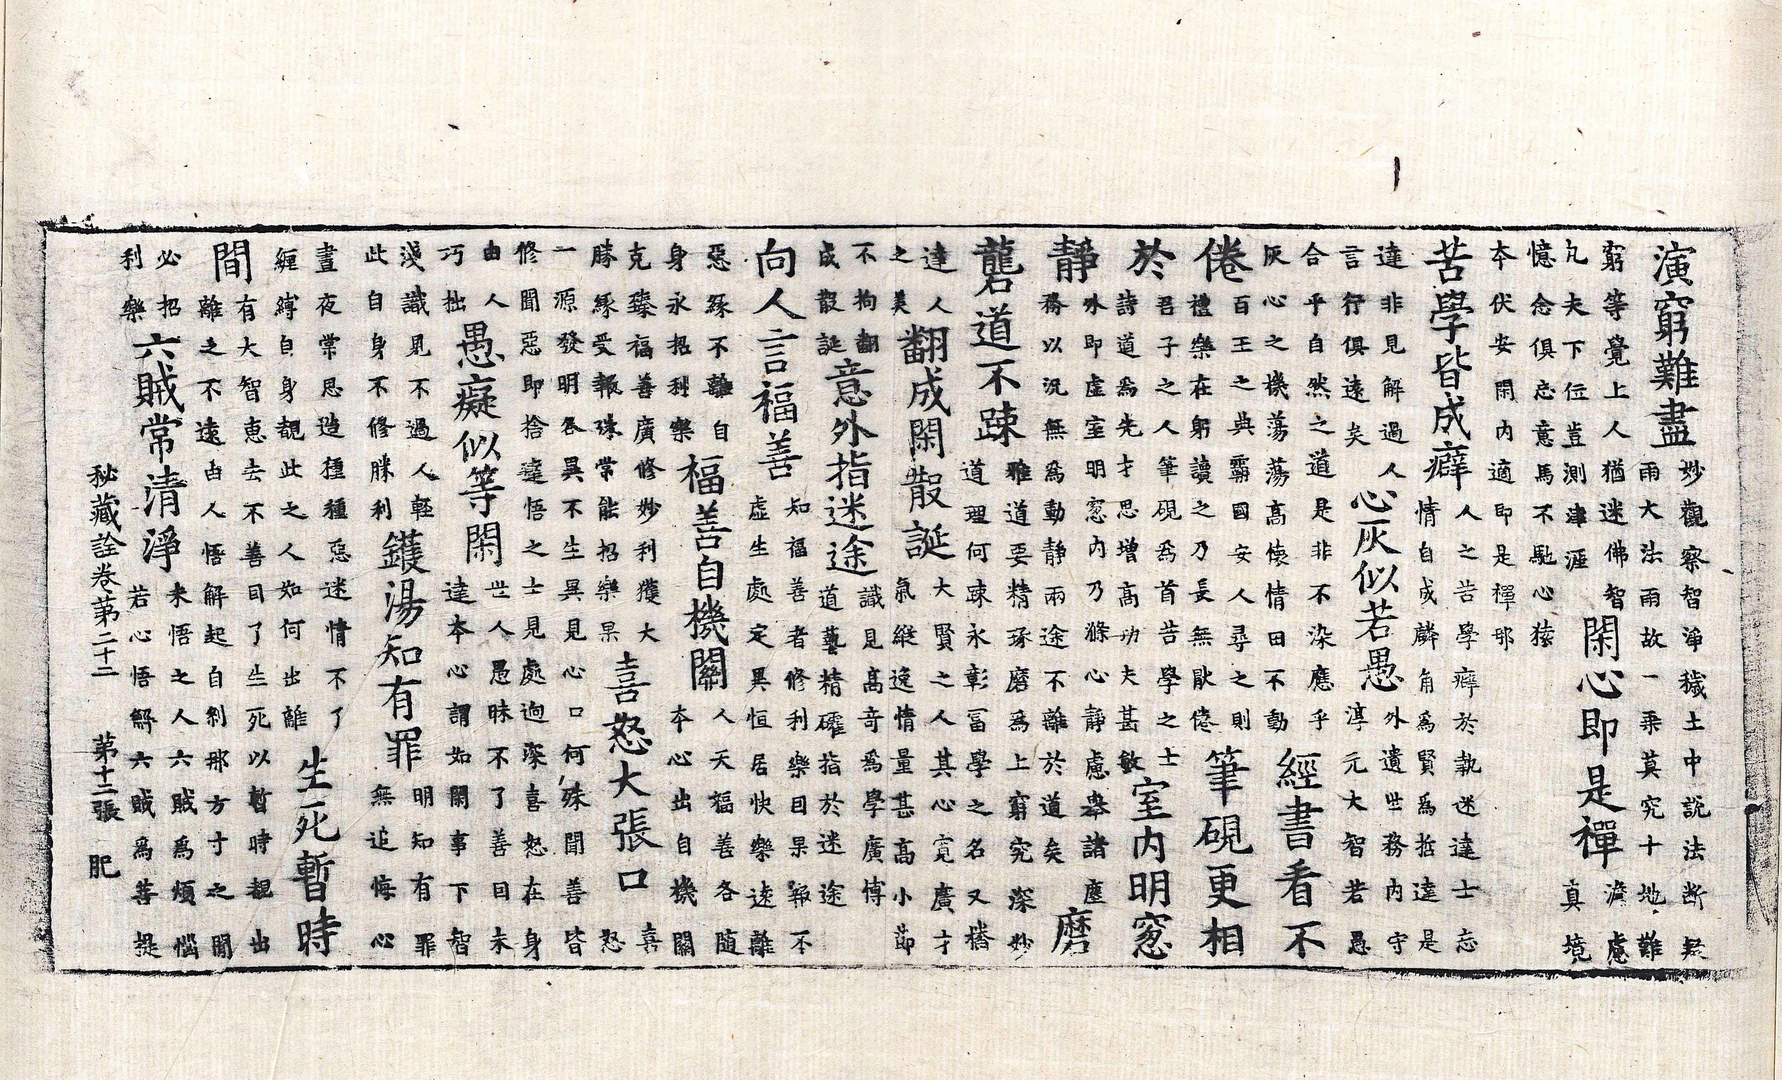 演窮難盡
妙觀察智淨穢土中説法断疑
雨大法雨故一乗莫究十地難
窮等覺上人猶迷佛智
凢夫下位豈測津涯
閑心即是禪
澹慮
真境
憶念俱忘意馬不馳心猿
本伏安閑内適即是禪郍
苦學皆成癖
人之苦學癖於執迷達士忘
情自成麟角爲賢爲哲達是
達非見解過人
言行俱遠矣
心灰似若愚
外遺世務内守
淳元大智若愚
合乎自然之道是非不染應乎
灰心之機蕩蕩高懷情田不動
經書看不
倦
百王之典霸國安人尋之則
禮樂在躬讀之乃長無猒倦
筆硯更相
於
君子之人筆硯爲首苦學之士
詩道爲先才思增高功夫甚敏
室内明窓
静
外即虛室明窓内乃滌心静慮舉諸塵
務以況無爲動静兩途不離於道矣
磨
礱道不踈
雅道要精琢磨爲上窮究深妙
道理何踈永彰冨學之名又播
達人
之美
翻成閑散誕
大賢之人其心寛廣才
氣縱逸情量甚高小節
不拘翻
成散誕
意外指迷途
識見高奇爲學廣博
道藝精確指於迷途
向人言福善
知福善者修利樂目果報不
虛生處定異恒居快樂速離
惡緣不離自
身永招利樂
福善自機關
人天福善各随
本心出自機關
克臻福善廣修妙利獲大
勝緣受報殊常能招樂果
喜怒大張口
喜
怒
一源發明各異不生異見心口何殊聞善皆
修聞惡即捨達悟之士見處逈深喜怒在身
由人
巧拙
愚癡似等閑
世人愚昧不了善目未
達本心謂如閑事下智
淺識見不過人輕
此自身不修勝利
鑊湯知有罪
明知有罪
無追悔心
晝夜常思造種種惡迷情不了
纒縛自身覩此之人如何出離
生死暫時
間
有大智恵去不善目了生死以暫時覩出
離之不遠由人悟解起自刹那方寸之間
必招
利樂
六賊常清淨
未悟之人六賊爲煩惱
若心悟解六賊爲菩提
秘藏詮卷苐二十二　苐十二張　肥